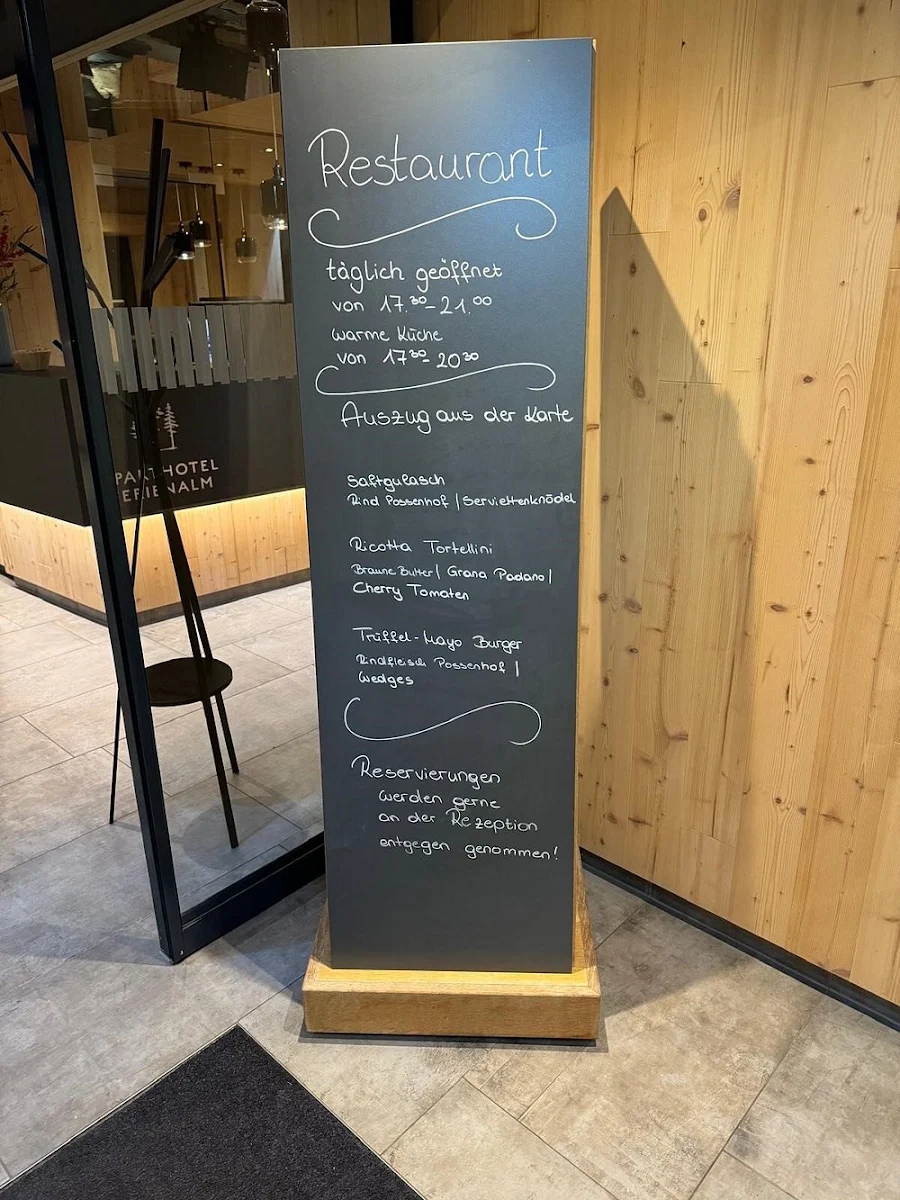 Restaurant
täglich geöffnet
von 17.30-21.00
warme Küche
von 1730-2030
Auszug aus der Karte
Saftgulasch
Rind Possenhof | Serviettenknödel
Ricotta Tortellini
Braune Butter | Grana Padano |
Cherry Tomaten
Trüffel-Mayo Burger
Rindfleisch Possenhof |
Wedges
Reservierungen
werden gerne
an der Rezeption
entgegen genommen!
PARTHOTEL
FERIENALM